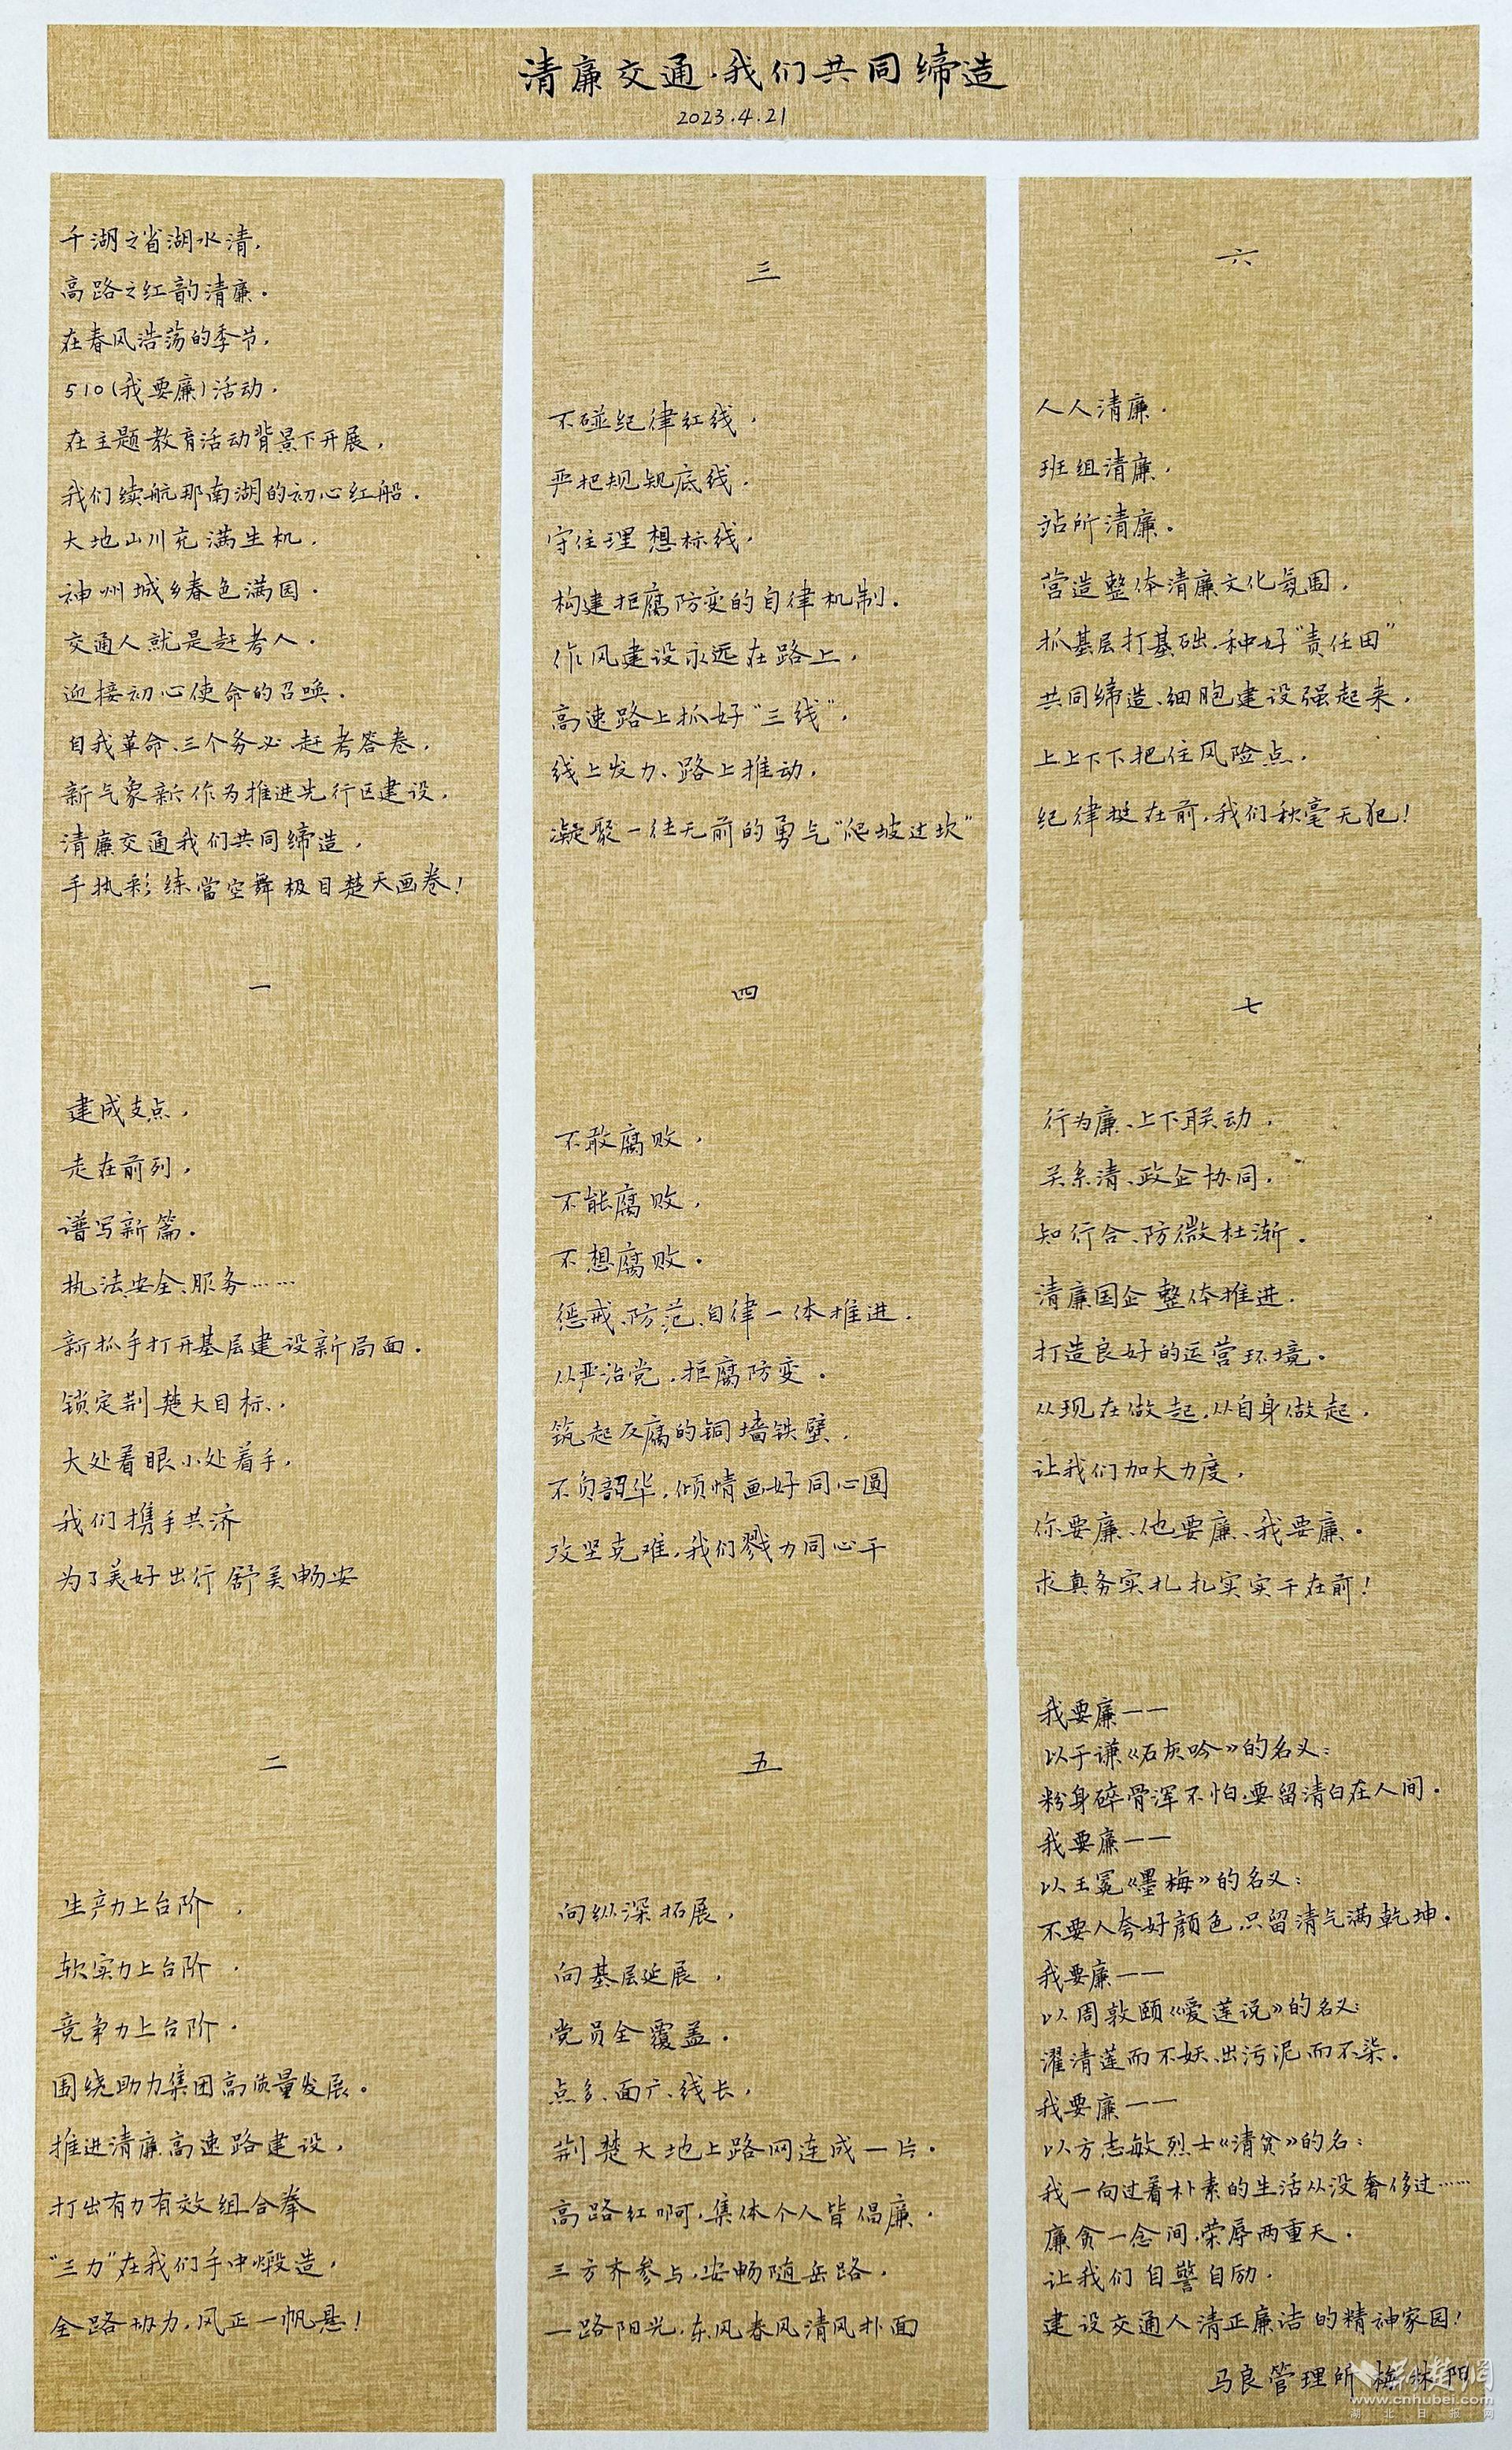 清廉交通·我们共同缔造
2023.4.21
千湖之省湖水清，
高路之红韵清廉．
在春风浩荡的季节，
510（我要廉）活动，
在主题教育活动背景下开展，
我们续航那南湖的初心红船．
大地山川充满生机，
神州城乡春色满园．
交通人就是赶考人．
迎接初心使命的召唤．
自我革命、三个务必、赶考答卷，
新气象新作为推进先行区建设，
清廉交通我们共同缔造，
手执彩练當空舞极目楚天画卷！
一
建成支点，
走在前列，
谱写新篇．
执法、安全、服务……
新抓手打开基层建设新局面．
锁定荆楚大目标，
大处着眼小处着手，
我们携手共济
为了美好出行舒美畅安
二
生产力上台阶，
软实力上台阶．
竞争力上台阶．
围绕助力集团高质量发展．
推进清廉高速路建设，
打出有力有效组合拳
“三力”在我们手中煅造，
全路协力，风正一帆悬！
三
不碰纪律红线，
严把规矩底线．
守住理想标线，
构建拒腐防变的自律机制．
作风建设永远在路上，
高速路上抓好“三线”，
线上发力、路上推动，
凝聚一往无前的勇气“爬坡过坎”
四
不敢腐败，
不能腐败，
不想腐败．
惩戒、防范、自律一体推进．
从严治党，拒腐防变．
筑起反腐的铜墙铁壁，
不负韶华，倾情画好同心圆
攻坚克难，我们戮力同心干
五
向纵深拓展，
向基层延展，
党员全覆盖．
点多、面广、线长，
荆楚大地上路网连成一片．
高路红啊，集体个人皆倡廉．
三方齐参与，安畅随岳路，
一路阳光，东风春风清风扑面
六
人人清廉．
班组清廉，
站所清廉．
营造整体清廉文化氛围，
抓基层打基础，种好“责任田”
共同缔造、细胞建设强起来，
上上下下把住风险点，
纪律挺在前，我们秋毫无犯！
七
行为廉、上下联动，
关系清、政企协同，
知行合、防微杜渐．
清廉国企整体推进．
打造良好的运营环境．
从现在做起，从自身做起，
让我们加大力度，
你要廉、他要廉、我要廉．
求真务实扎扎实实干在前！
我要廉——
以于谦《石灰吟》的名义：
粉身碎骨浑不怕，要留清白在人间．
我要廉——
以王冕《墨梅》的名义：
不要人夸好颜色，只留清气满乾坤．
我要廉——
以周敦颐《爱莲说》的名义：
濯清莲而不妖、出污泥而不染．
我要廉——
以方志敏烈士《清贫》的名：
我一向过着朴素的生活从没奢侈过……
廉贪一念间，荣辱两重天．
让我们自警自励，
建设交通人清正廉洁的精神家园！
马良管理所 梅林阳
荆楚網
www.cnhubei.com
湖北日报网